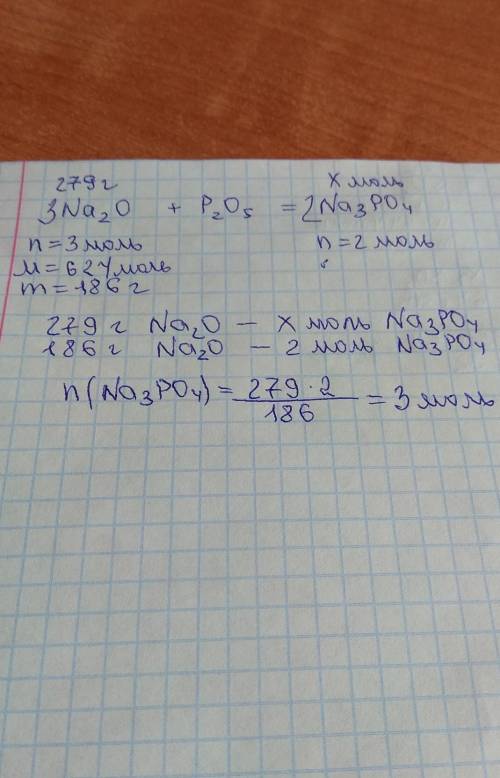 279 г х моль
3Na₂O + P₂O₅ = 2Na₃PO₄
n = 3 моль n = 2 моль
M = 62 г/моль
m = 186 г
279 г Na₂O – х моль Na₃PO₄
186 г Na₂O – 2 моль Na₃PO₄
n(Na₃PO₄) = 279 · 2 / 186 = 3 моль